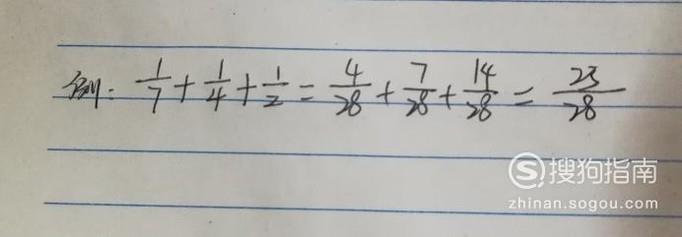 例: 1/7 + 1/4 + 1/2 = 4/28 + 7/28 + 14/28 = 25/28
搜狗指南
zhinan.sogou.com